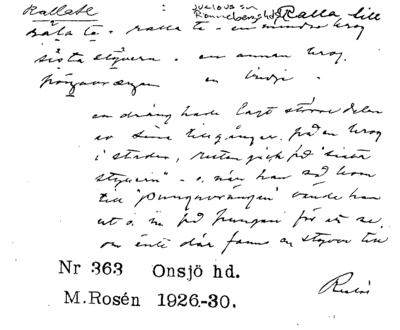 Rallate Ralla till
Ronnebergshd
råla ta. ralla ta - en mindre krog
sista styvern. en annan krog.
en tredje.
en dräng hade lagt större delen
av sina tillgångar på en krog
i staden, resten gick på "sista
styvern" - o. när han så kom
till "pungavrängen" vände han
ut o. in på pungen för at se
om inte där fans en styver till
Nr 363 Onsjö hd.
M.Rosén 1926.-30.